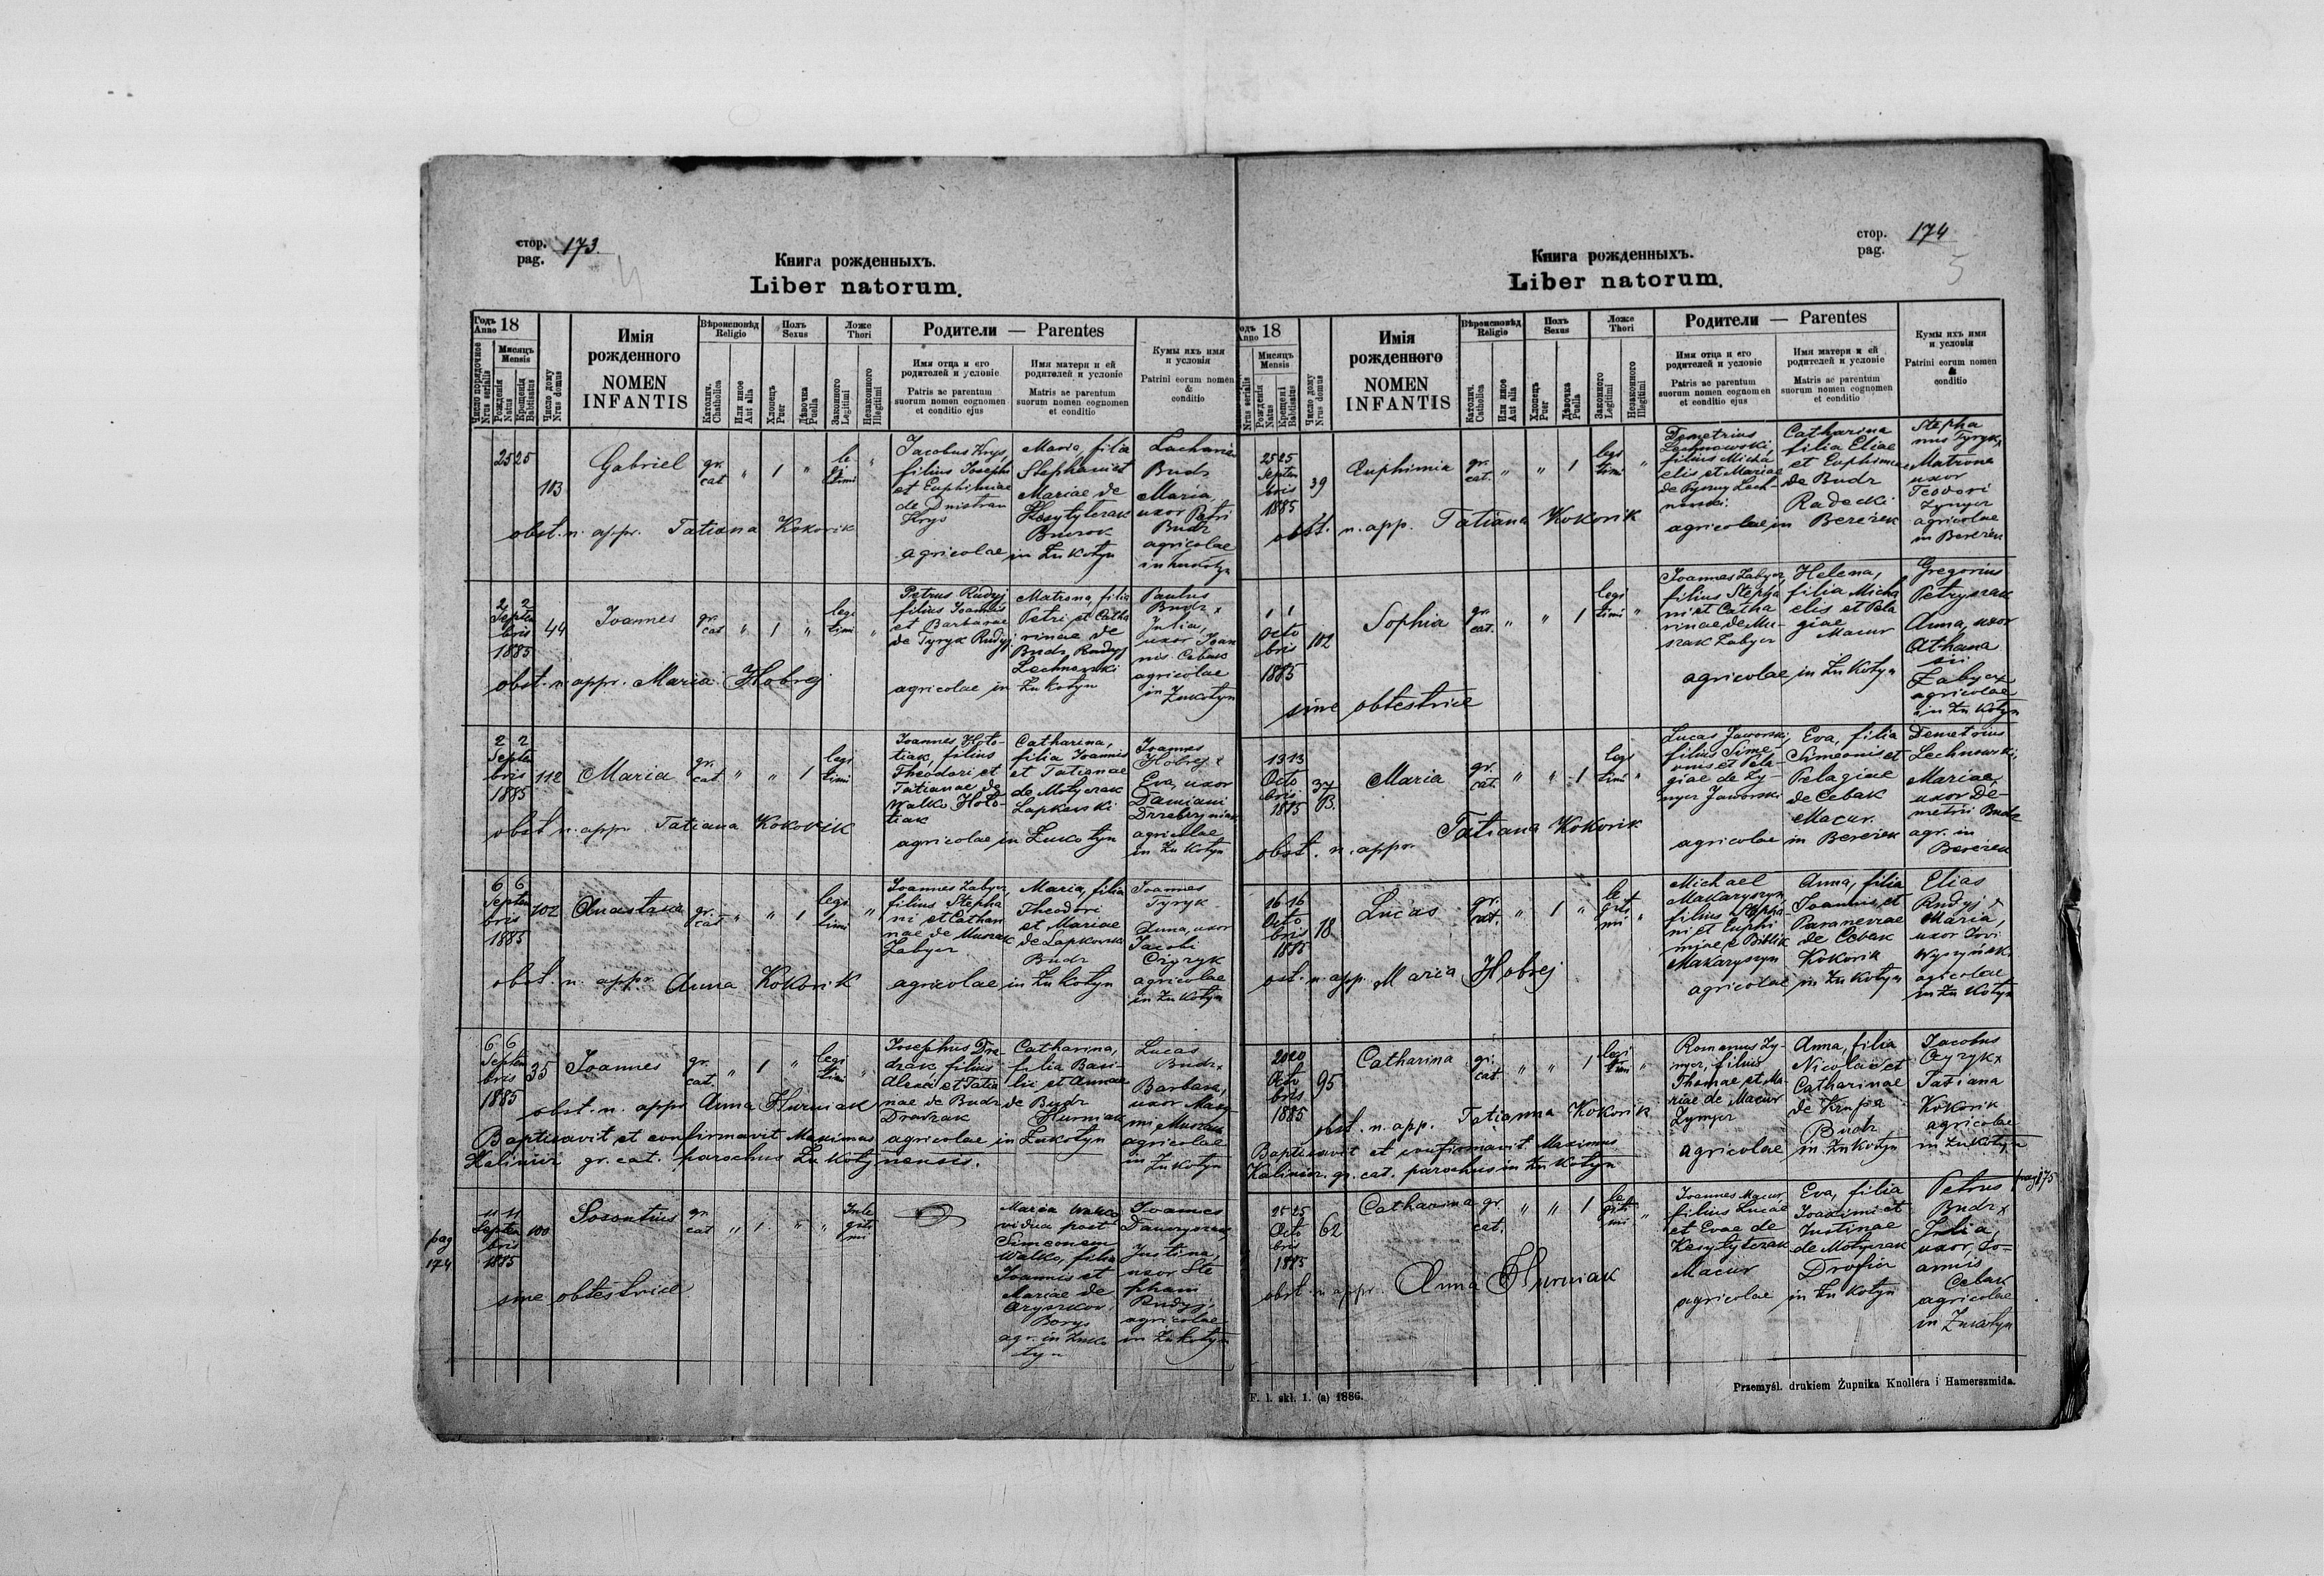 стор. 173.
pag.
Книга рожденныхъ.
Liber natorum.
Годъ Anno 18
Число порядочное Nrus serialis
Мисяць Mensis
Рожденія Natus
Крещенія Babtisatus
Число дому Nrus domus
Имія рожденного
NOMEN INFANTIS
Вѣроисповѣд Religio
Католич. Chatholica
Или иное Aut alia
Полъ Sexus
Хлопецъ Puer
Дѣвочка Puella
Ложе Thori
Законного Legitimi
Незаконного Illegitimi
Родители — Parentes
Имя отца и его родителей и условіе
Patris ac parentum suorum nomen cognomen et conditio ejus
Имя матери и ей родителей и условіе
Matris ac parentum suorum nomen cognomen et conditio
Кумы ихъ имя и условія
Patrini eorum nomen & conditio
25 25
113
Gabriel
gr. cat
" 1 "
legitimi "
Jacobus Krys,
filius Josephi
et Euphimiae
de Dnistran
Krys
Maria, filia
Stephani et
Mariae de
Kesytyczak
agricolae in Żukotyn
Zacharias
Budz
Maria,
uxor Petri
Budz
agricolae
in Żukotyn
obst. n. appr. Tatiana Kokorik
2 2
Septembris
1885
44
Joannes
gr. cat
" 1 "
legitimi "
Petrus Rudyj
filius Joannis
et Barbarae
de Tyryk Rudyj
Matrona, filia
Petri et Catharinae de
Budz, Rudyj
Lechnowski
agricolae in Żukotyn
Paulus
Budz x
Julia,
uxor Joannis Cebak
agricolae
in Żukotyn
obst. n. appr. Maria Hobrej
2 2
Septembris
1885
112
Maria
gr. cat
" " 1
legitimi
Joannes Hototiak, filius
Theodori et
Tatianae de
Walko Hototiak
Catharina,
filia Joannis
et Tatianae
de Motyczak
Lapkowski
agricolae in Żukotyn
Joannes
Hobrej x
Eva, uxor
Damiani
agricolae
in Żukotyn
obst. n. appr. Tatiana Kokorik
6 6
Septembris
1885
102
Anastasia
gr. cat
" " 1
legitimi "
Joannes Zabycz,
filius Stephani et Catharinae de Muszak
Zabycz
Maria, filia
Theodori
et Mariae
de Lapkowski
Budz
agricolae in Żukotyn
Joannes
Tyryk
Anna, uxor
Jacobi
Czyryk
agricolae
in Żukotyn
obst. n. appr. Anna Kokorik
6 6
Septembris
1885
35
Joannes
gr. cat.
" 1 "
legitimi "
Josephus Dradrak, filius
Alexii et Tatianae de Budz
Dradrak
Catharina,
filia Basilii et Annae
de Budz
Hurniak
agricolae in Żukotyn
Lucas
Budz x
Barbara,
uxor Maximi Muszak
agricolae
in Żukotyn
obst. n. appr Anna Hurniak
Baptisavit et confirmavit Maximus
Kalimir gr. cat. parochus Żukotynensis.
pag 174
11 11
Septembris
1885
100
Sosontius
gr. cat
" 1 " "
Illegitimi
Maria Walko
vidua post
Simeonem
Walko, filia
Joannis et
Mariae de
Borys
agr. in Żukotyn
Joannes
Justina,
uxor Stephani
Rudyj,
agricolae
in Żukotyn
sine obtestrice
стор. 174
pag.
5
Книга рожденныхъ.
Liber natorum.
Годъ Anno 18
Nrus serialis
Мисяць Mensis
Рожденія Natus
Крещені Babtisatus
Число дому Nrus domus
Имія рожденного
NOMEN INFANTIS
Вѣроисповѣд Religio
Католич. Catholica
Или иное Aut alia
Полъ Sexus
Хлопецъ Puer
Дѣвочка Puella
Ложе Thori
Законного Legitimi
Незаконного Illegitimi
Родители — Parentes
Имя отца и его родителей и условіе
Patris ac parentum suorum nomen cognomen et conditio ejus
Имя матери и ей родителей и условіе
Matris ac parentum suorum nomen cognomen et conditio
Кумы ихъ имя и условія
Patrini eorum nomen & conditio
25 25
Septembris
1885
39
Euphimia
gr. cat.
" " 1
legitimi "
Demetrius
Lechnowski,
filius Michaelis et Mariae
Catharina
filia Eliae
et Euphimiae
de Budz
Radecki
agricolae in Bereżek
Stephanus Tyryk x
Matrona
uxor
Teodori
Zymyer
agricolae
in Bereżek
obst. n. app. Tatiana Kokorik
1 1
Octobris
1885
102
Sophia
gr. cat.
" " 1
legitimi "
Joannes Zabycz,
filius Stephani et Catharinae de Muszak Zabycz
Helena,
filia Michaelis et Pelagiae
Macur
agricolae in Żukotyn
Gregorius
Petryszak
Anna, uxor
Athanasii
Zabycz
agricolae
in Żukotyn
sine obtestrice
13 13
Octobris
1885
37 B.
Maria
gr. cat.
" " 1
legitimi "
Lucas Jaworski,
filius Simeonis et Pelagiae de Zymyer Jaworski
Eva, filia
Simeonis et
Pelagiae
de Cebak
Macur.
agricolae in Bereżek
Demetrius
Lechnowski,
Mariae,
uxor Demetrii Budz
agr. in
Bereżek
obst. n. appr. Tatiana Kokorik
16 16
Octobris
1885
18
Lucas
gr. cat.
" 1 "
legitimi "
Michael
Makaryszyn,
filius Stephani et Euphimiae e Biblik
Makaryszyn
Anna, filia
Joannis et
Parasneviae
de Cebak
Kokorik
agricolae in Żukotyn
Elias
Rudyj x
Maria,
uxor
agricolae
in Żukotyn
ost. n. app. Maria Hobrej
20 20
Octobris
1885
95
Catharina
gr. cat
" " 1
legitimi "
Romanus Zymyer, filius
Thomae et Mariae de Macur
Zymyer
Anna, filia
Nicolai et
Catharinae
de Krupa
Budz
agricolae in Żukotyn
Jacobus
Czyryk x
Tatiana
Kokorik
agricolae
in Żukotyn
obst. n. app. Tatianna Kokorik
Baptisavit et confirmavit Maximus
Kalimir. gr. cat. parochus in Żukotyn
pag 175
25 25
Octobris
1885
62
Catharina
gr. cat.
" " 1
legitimi "
Joannes Macur,
filius Lucae
et Evae de
Kesytyczak
Macur
Eva, filia
Joakimi et
Justinae
de Motyczak
Droficz
agricolae in Żukotyn
Petrus
Budz x
Julia,
uxor Joannis
Cebak
agricolae
in Żukotyn
obst. n. appr. Anna Hurniak
F. l. skł. 1. (a) 1886.
Przemyśl. drukiem Żupnika Knollera i Hamerszmida.